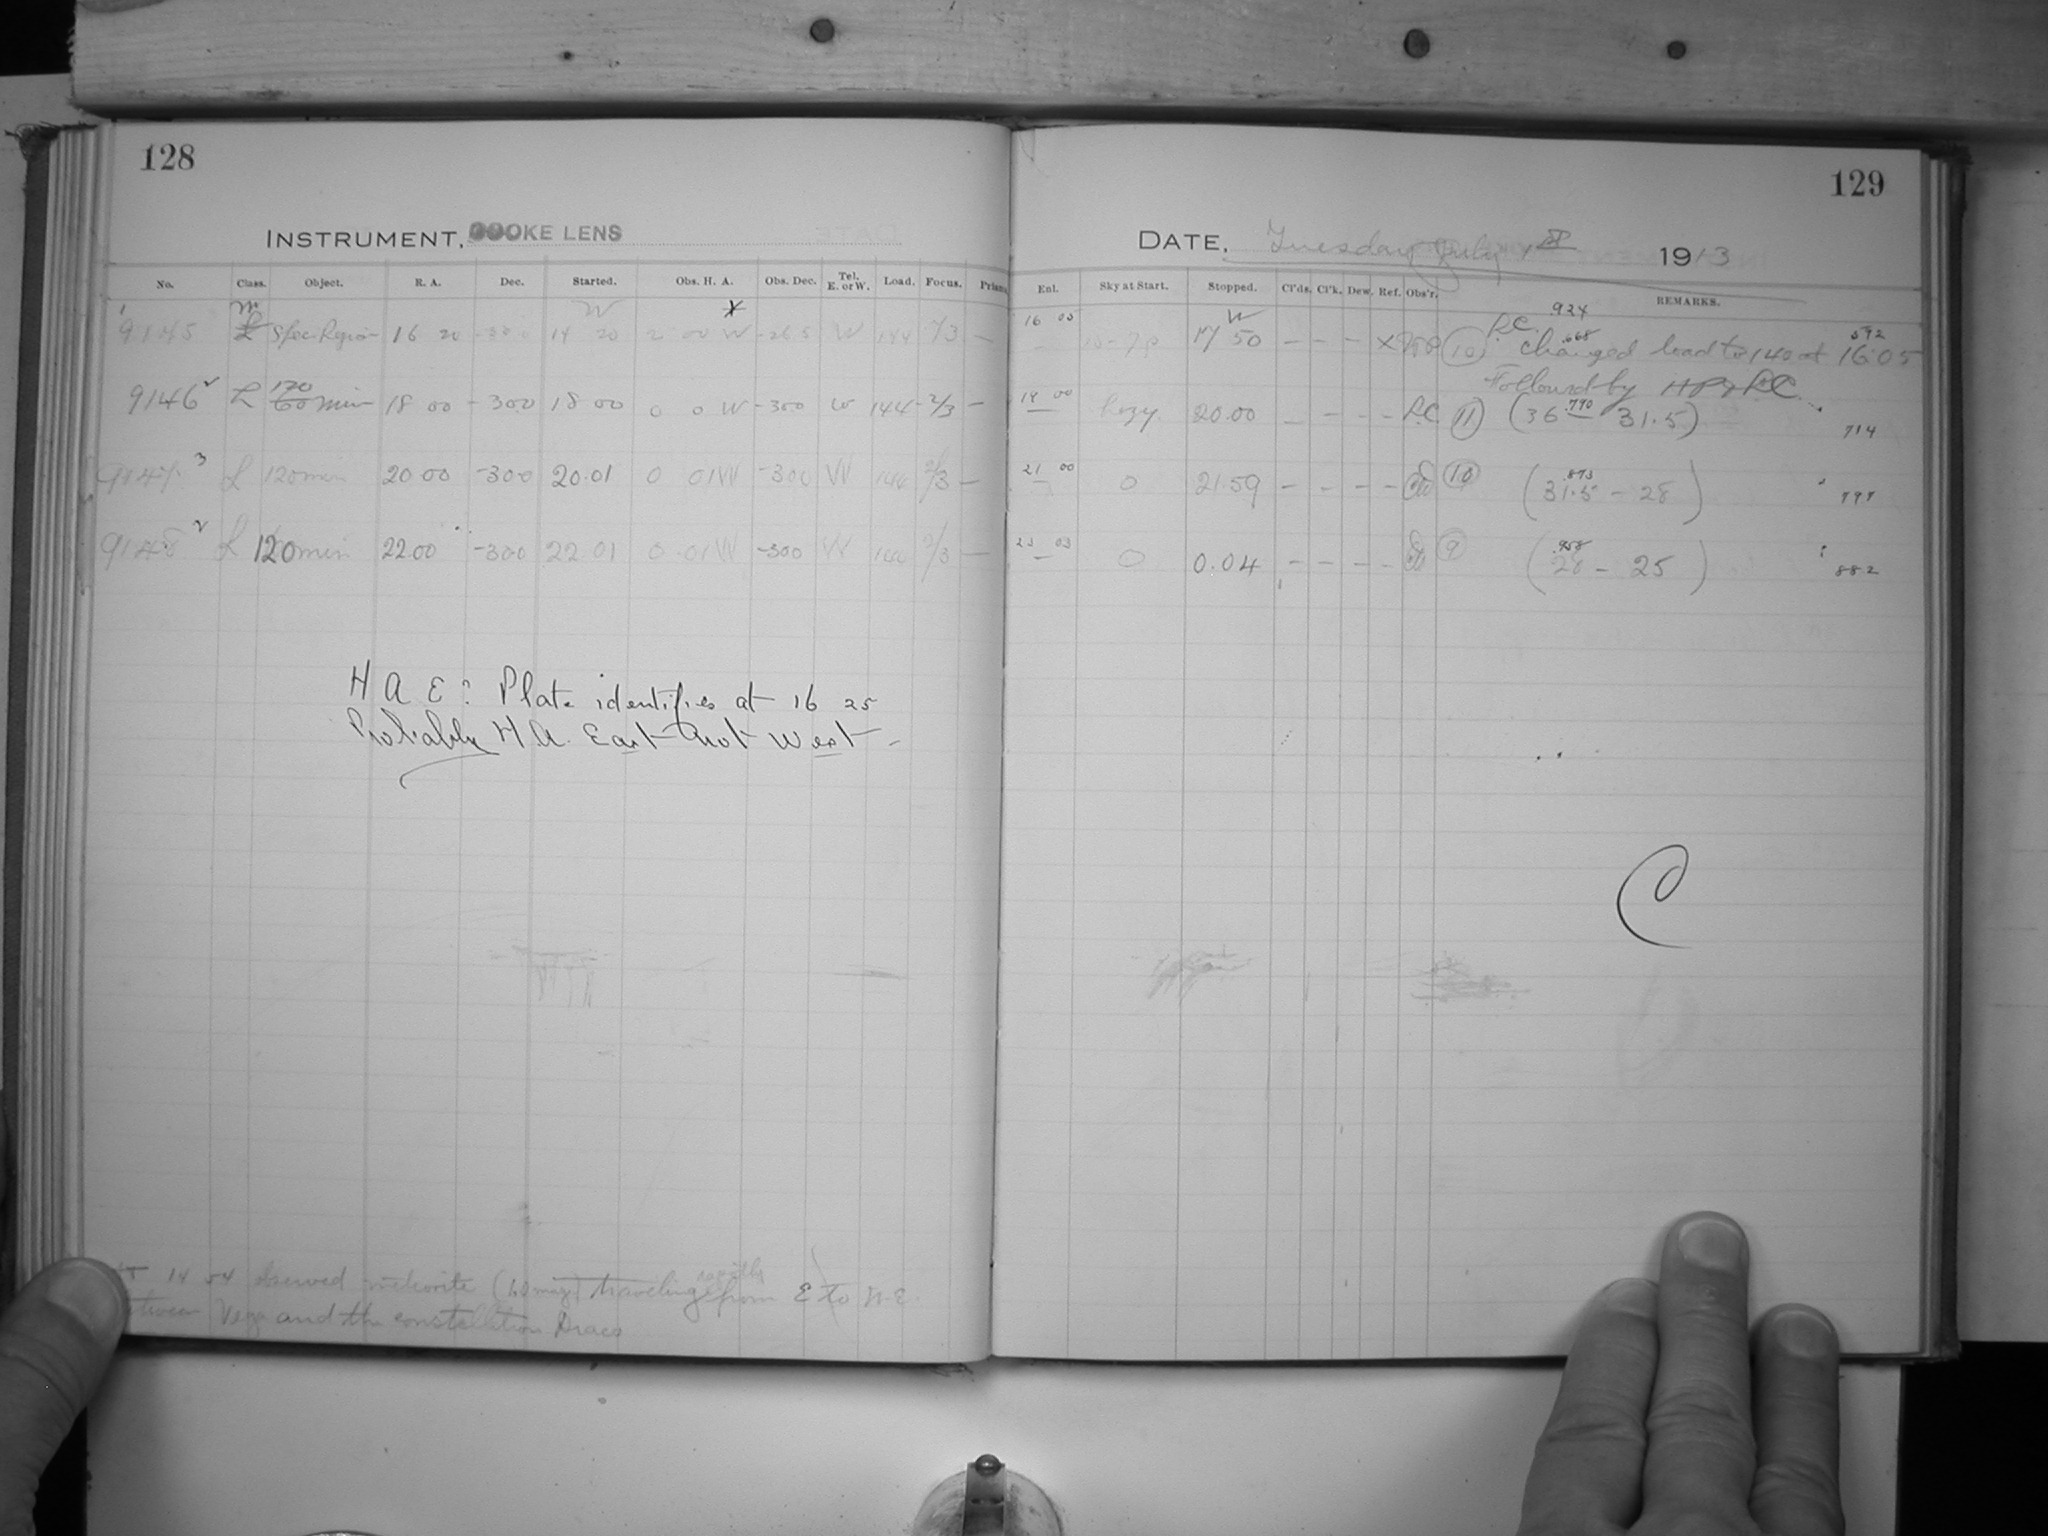 128
129
INSTRUMENT, COOKE LENS
DATE, Tuesday July 1913
No. Class. Object. R. A. Dec. Started. Obs. H. A. Obs. Dec. Tel. E. or W. Load. Focus. Prisms
Ent. Sky at Start. Stopped. Cl'ds. Cl'k. Dew. Ref. Obs'r. REMARKS.
9145 Spec. Region 16 20 14 20 2 00 W -26 5 W 144 2/3 —
16 05 17 50 — — — X (10) P.C. .924 changed load to 140 at 16.05 .668 592
Followed by
9146 L 120 60 min 18 00 -300 18 00 0 0 W -300 W 144 2/3 —
19 00 hazy. 20.00 — — — — P.C. (11) (36 — 31.5) .790 714
9147 3 L 120 min 20 00 -300 20.01 0 01 W -300 W 144 2/3 —
21 00 0 21.59 — — — — (10) (31.5 — 28) .873 797
9148 L 120 min 22 00 -300 22 01 0 01 W -300 W 144 2/3 —
23 03 0 0.04 — — — — (9) (28 — 25) .958 882
H A E? Plate identifies at 16 25
Probably H.A. East not West —
C
At 14 54 observed meteorite (1.0 mag) traveling rapidly from E to N.E.
between Vega and the constellation Draco